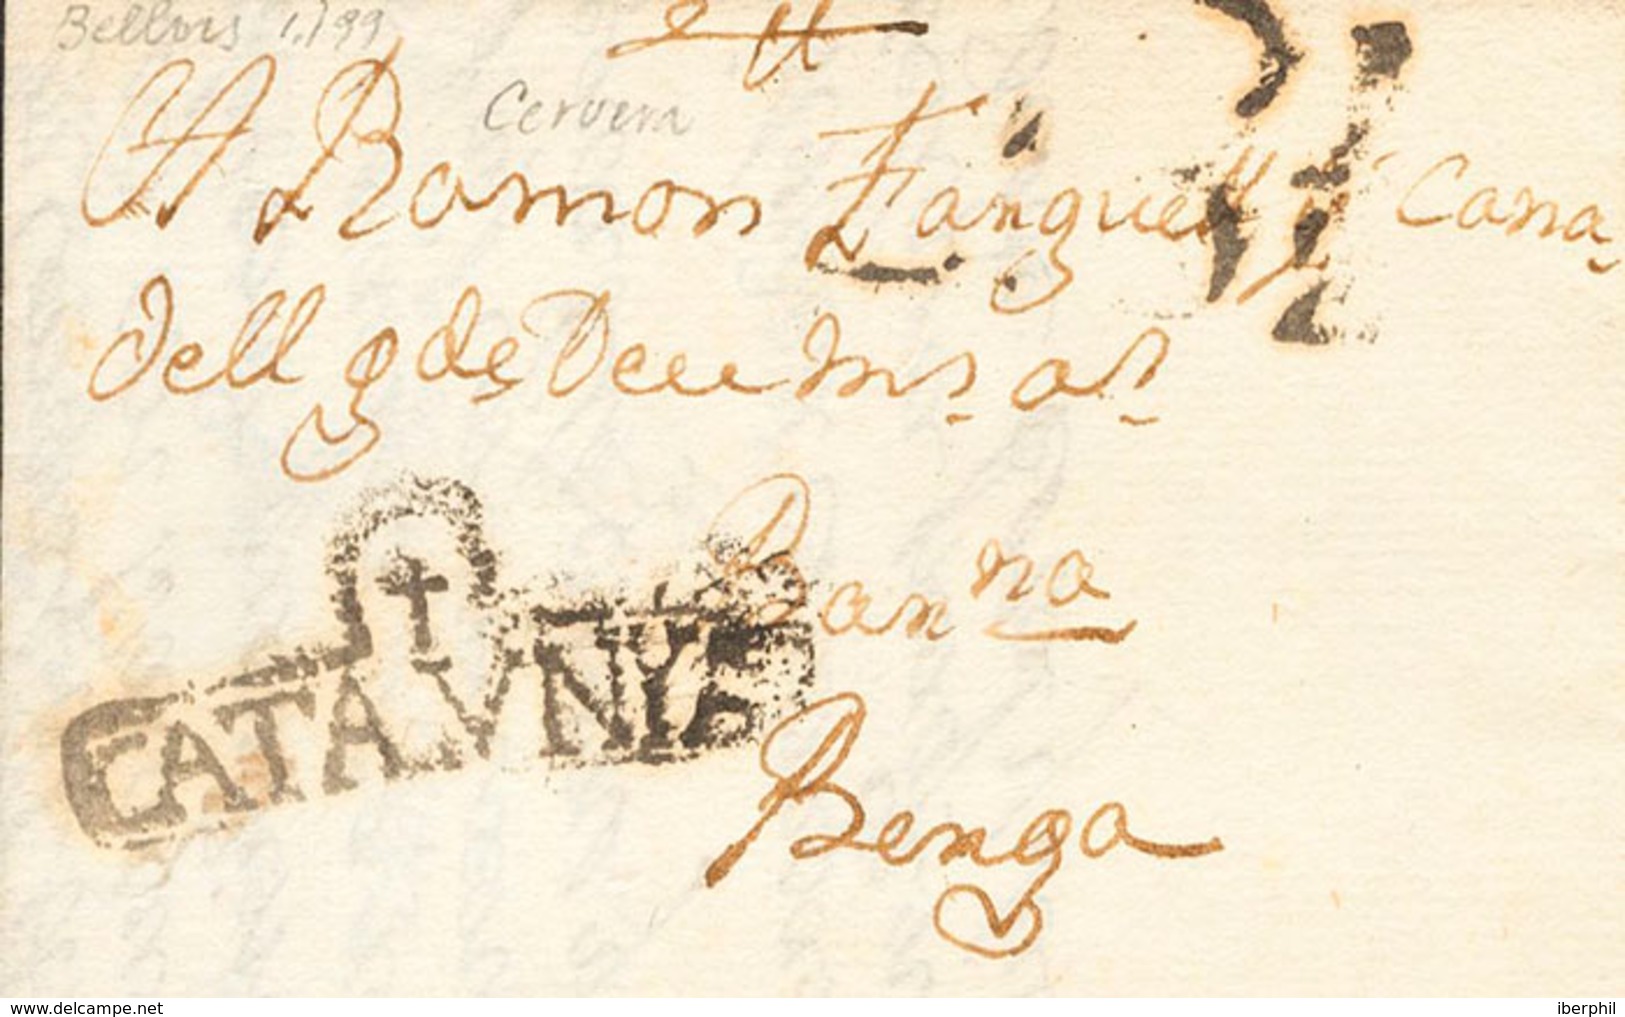 Bellvis 1,799
Cervera
A Ramon Fanguell y Cana,
dell g de Deu ms as
Barna
Benga
CATALVNYA
www.delcampe.net
iberphil